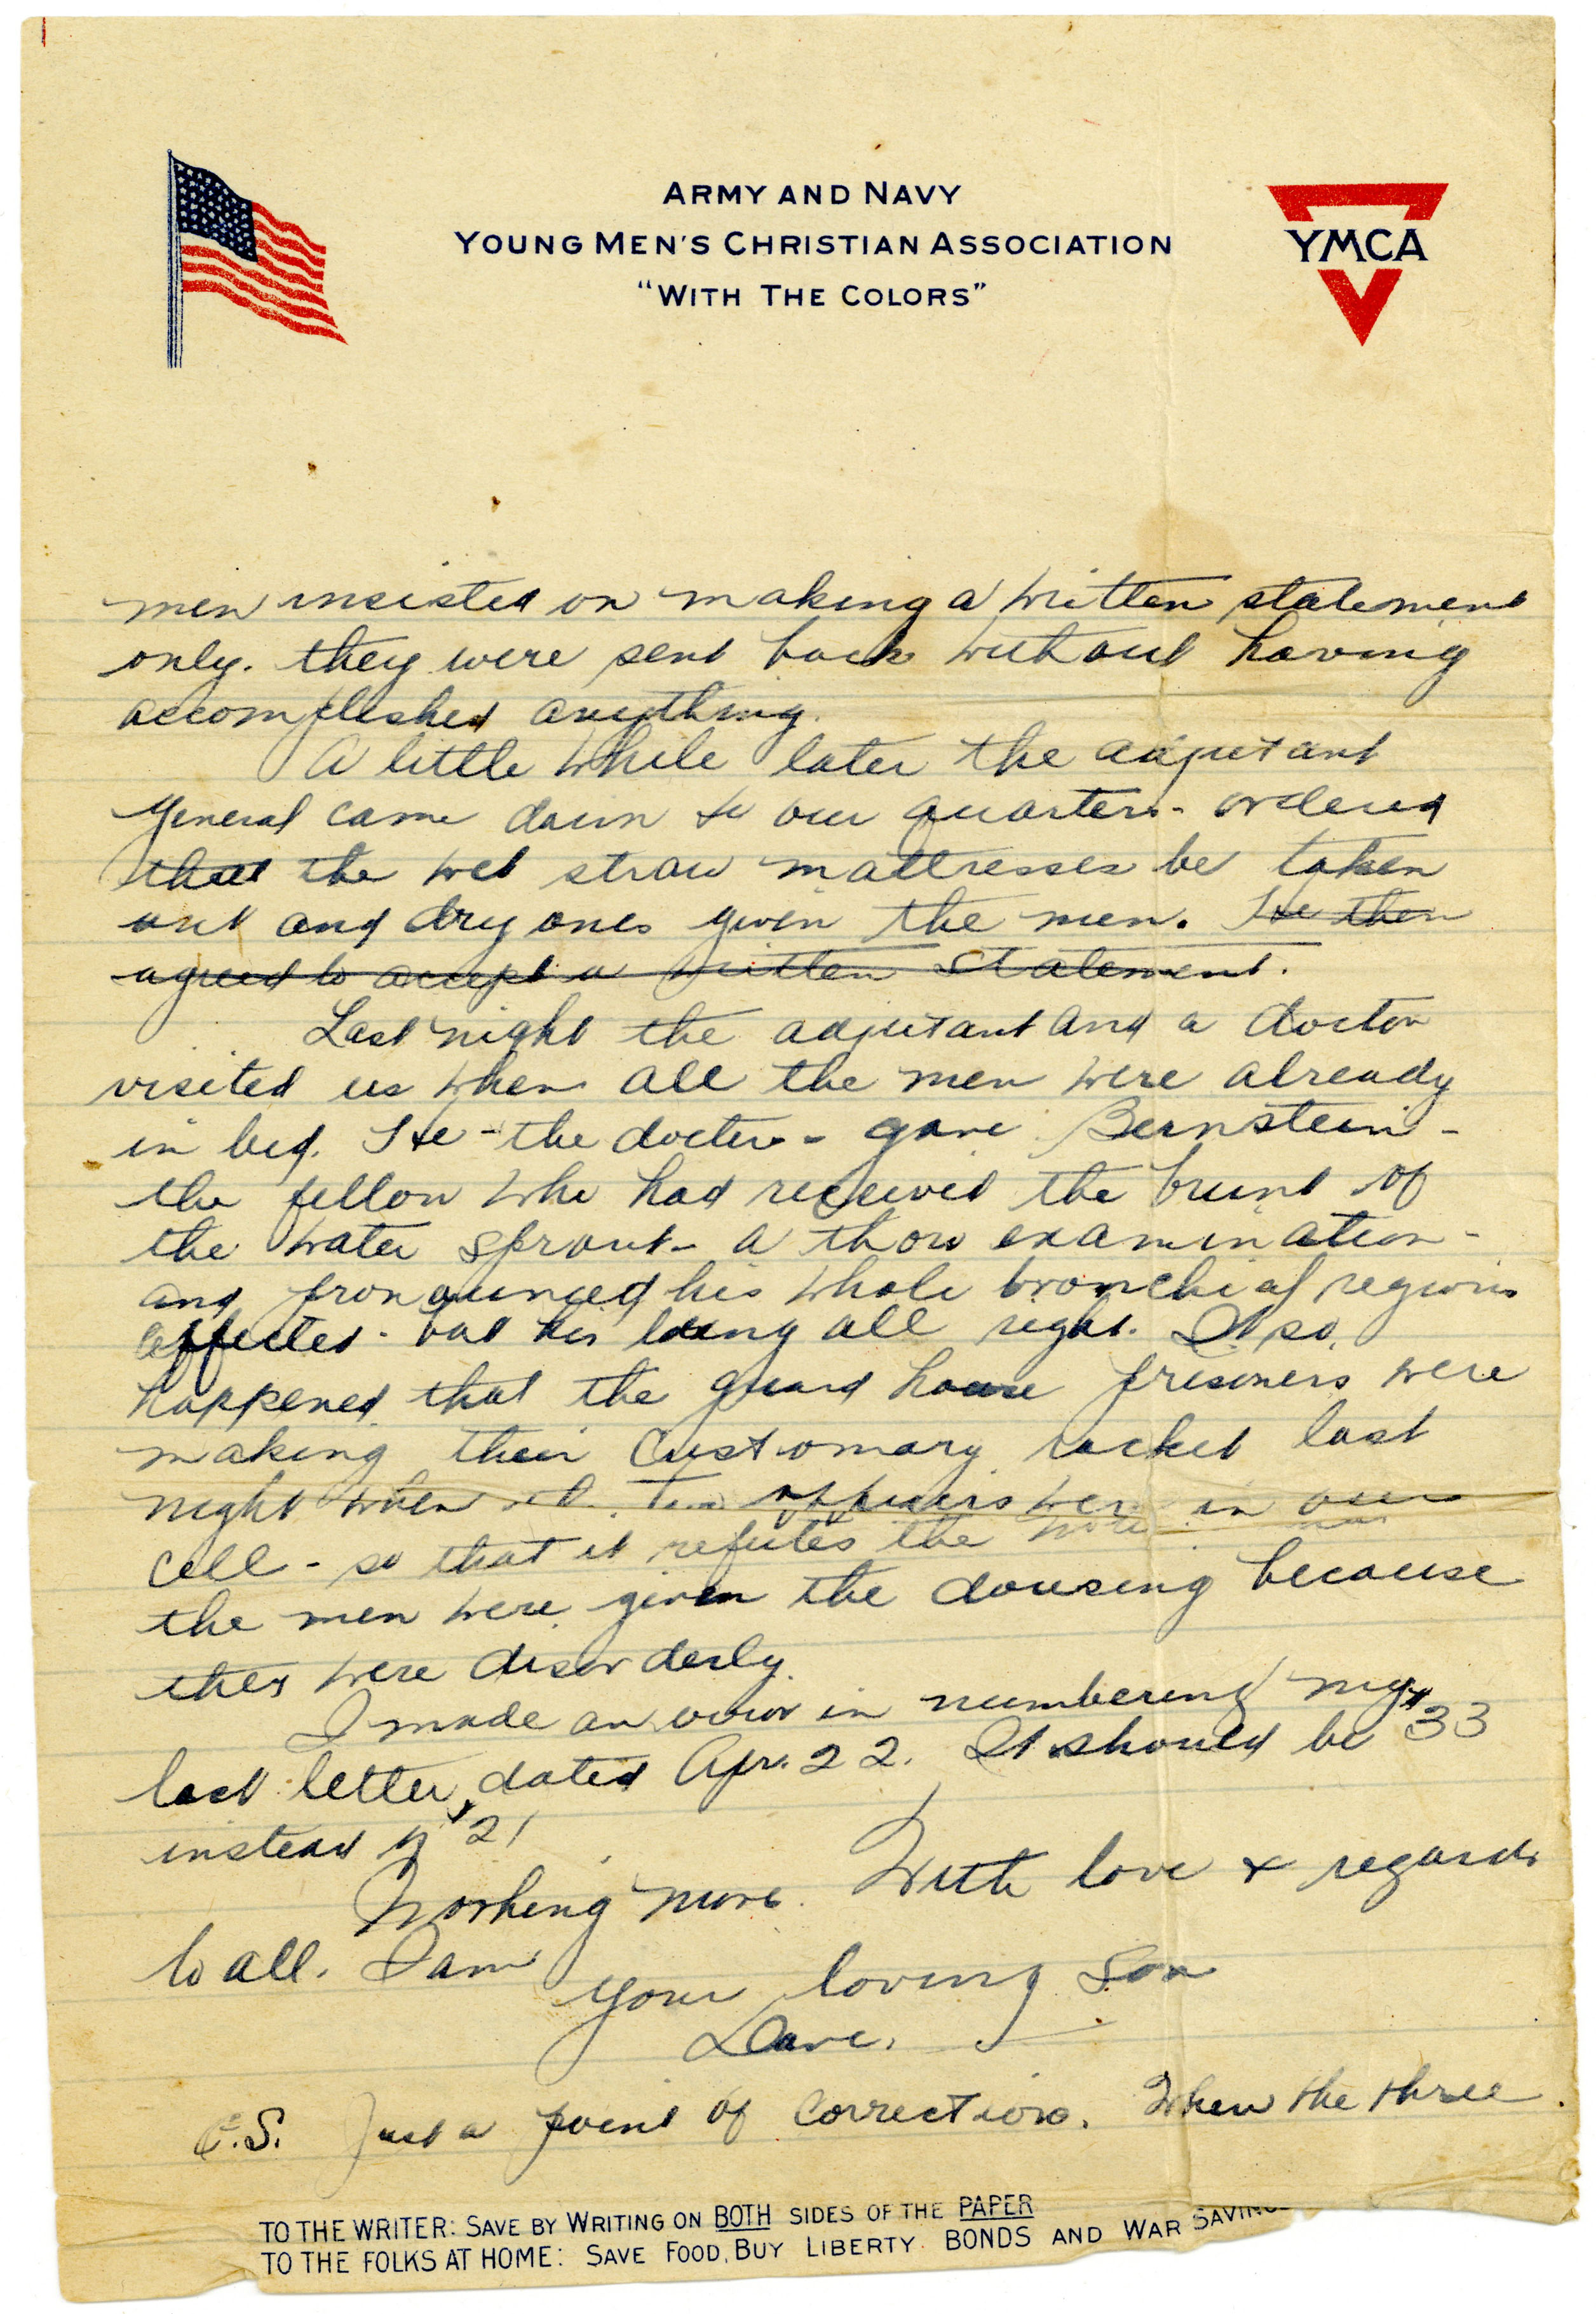 ARMY AND NAVY
YOUNG MEN'S CHRISTIAN ASSOCIATION
"WITH THE COLORS"
YMCA
men insisted on making a written statement
only. they were sent back without having
accomplished anything.
A little while later the adjutant
general came down to our quarters - ordered
that the wet straw mattresses be taken
out and dry ones given the men. He then
agreed to accept a written statement.
Last night the adjutant and a doctor
visited us when all the men were already
in bed. He - the doctor - gave Bernstein -
the fellow who had received the brunt of
the water sprout - a thoro examination -
and pronounced his whole bronchial regions
affected - but his lung all right. It so
happened that the guard house prisoners were
making their customary racket last
night when officers were in our
cell - so that it refutes the
the men were given the dousing because
they were disorderly.
I made an error in numbering my
last letter, dated Apr. 22. It should be #33
instead of #21
Nothing more. With love & regards
to all. I am
Your loving Son
Dave.
P.S. Just a point of correction. When the three
TO THE WRITER: SAVE BY WRITING ON BOTH SIDES OF THE PAPER
TO THE FOLKS AT HOME: SAVE FOOD, BUY LIBERTY BONDS AND WAR SAVINGS